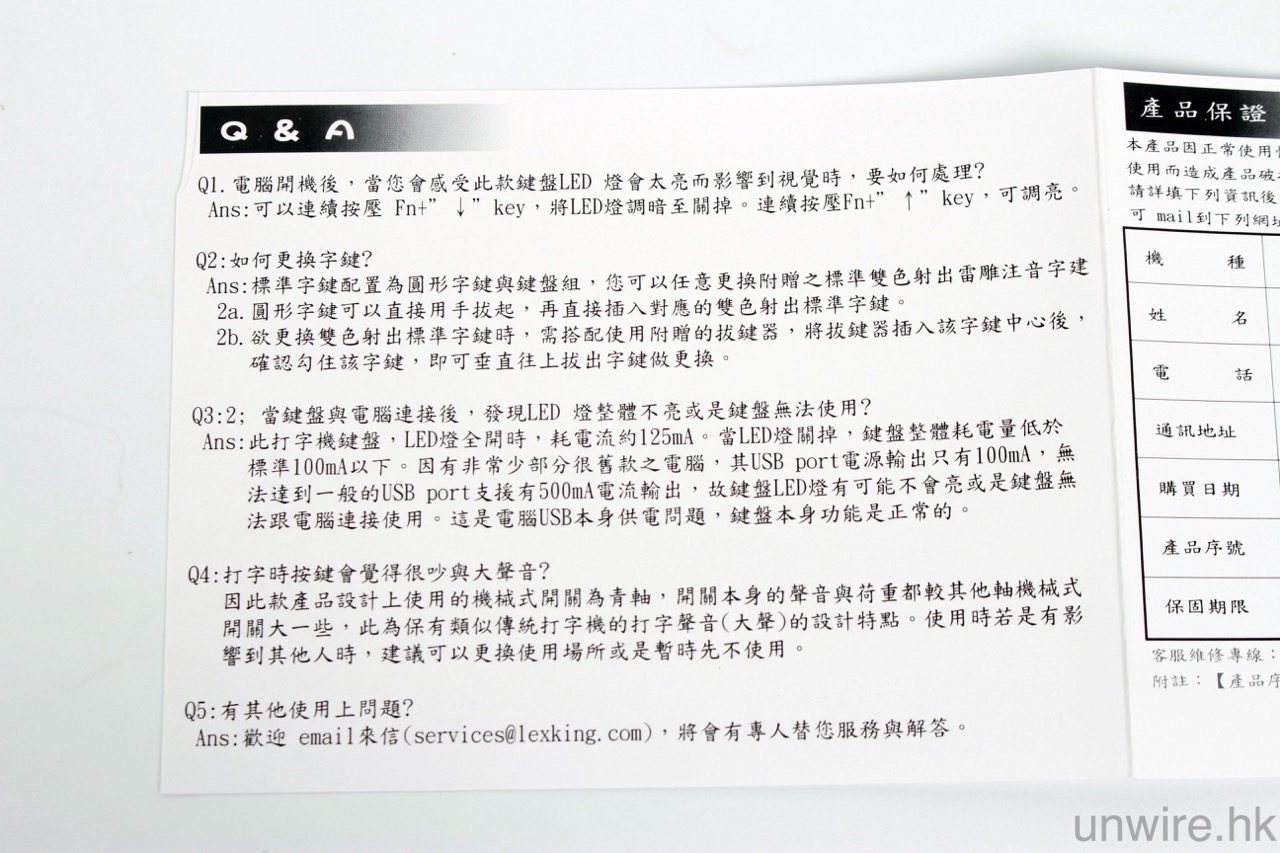 Q & A
Q1.電腦開機後，當您會感受此款鍵盤LED 燈會太亮而影響到視覺時，要如何處理?
Ans:可以連續按壓 Fn+”↓”key，將LED燈調暗至關掉。連續按壓Fn+”↑”key，可調亮。
Q2:如何更換字鍵?
Ans:標準字鍵配置為圓形字鍵與鍵盤組，您可以任意更換附贈之標準雙色射出雷雕注音字建
2a.圓形字鍵可以直接用手拔起，再直接插入對應的雙色射出標準字鍵。
2b.欲更換雙色射出標準字鍵時，需搭配使用附贈的拔鍵器，將拔鍵器插入該字鍵中心後，
確認勾住該字鍵，即可垂直往上拔出字鍵做更換。
Q3:2; 當鍵盤與電腦連接後，發現LED 燈整體不亮或是鍵盤無法使用?
Ans:此打字機鍵盤，LED燈全開時，耗電流約125mA。當LED燈關掉，鍵盤整體耗電量低於
標準100mA以下。因有非常少部分很舊款之電腦，其USB port電源輸出只有100mA，無
法達到一般的USB port支援有500mA電流輸出，故鍵盤LED燈有可能不會亮或是鍵盤無
法跟電腦連接使用。這是電腦USB本身供電問題，鍵盤本身功能是正常的。
Q4:打字時按鍵會覺得很吵與大聲音?
因此款產品設計上使用的機械式開關為青軸，開關本身的聲音與荷重都較其他軸機械式
開關大一些，此為保有類似傳統打字機的打字聲音(大聲)的設計特點。使用時若是有影
響到其他人時，建議可以更換使用場所或是暫時先不使用。
Q5:有其他使用上問題?
Ans:歡迎 email來信(services@lexking.com)，將會有專人替您服務與解答。
產品保證
本產品因正常使用
使用而造成產品破
請詳填下列資訊後
可 mail到下列網
機種
姓名
電話
通訊地址
購買日期
產品序號
保固期限
客服維修專線：
附註：【產品序
unwire.hk